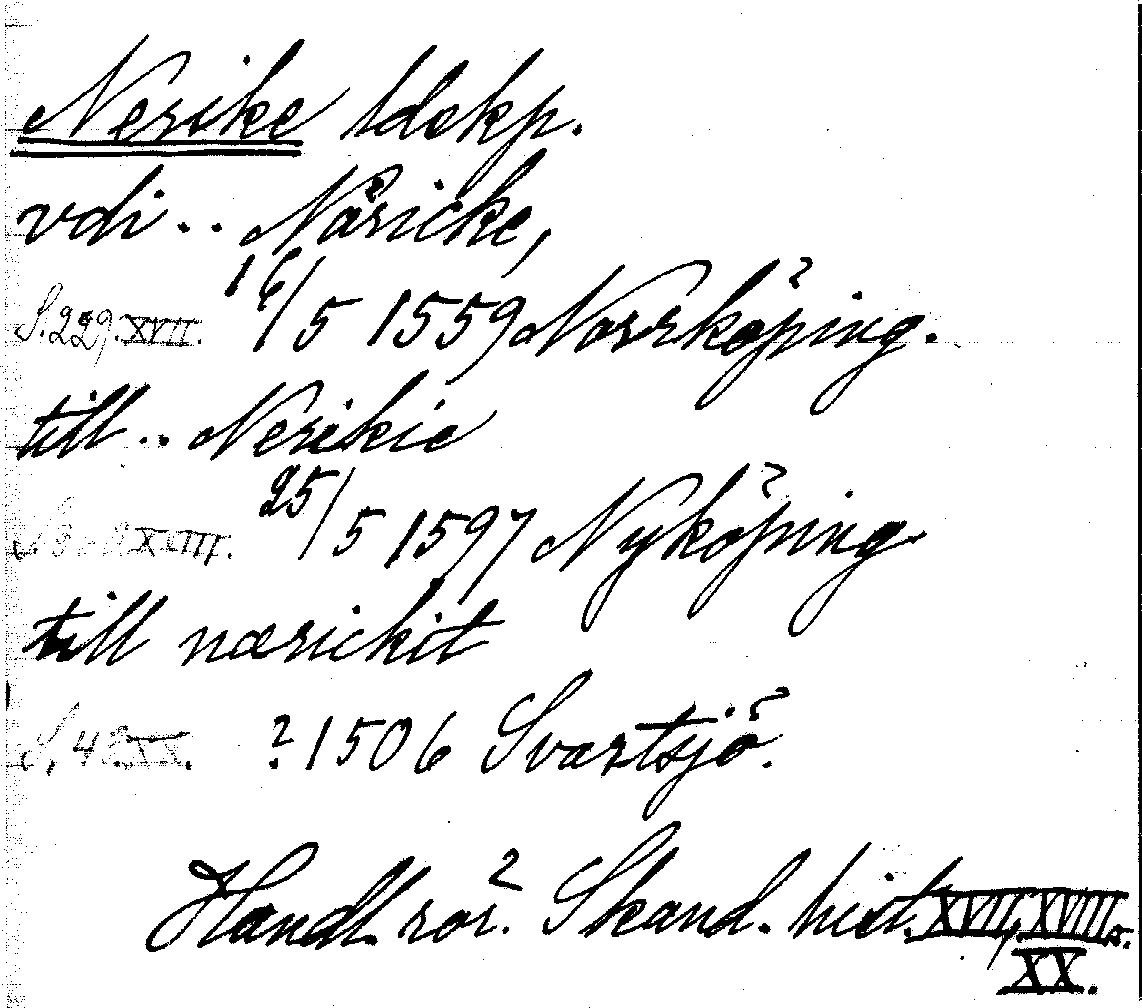 Nerike ldskp.
vdi .. Nåricke,
S. 229. XVII. 16/5 1559 Norrköping.
till .. Nerikie
XVIII. 25/5 1597 Nyköping
till nærickit
S. 48 XX. ? 1506 Svartsjö.
Handl. rör. Skand. hist. XVII, XVIII o.
XX.